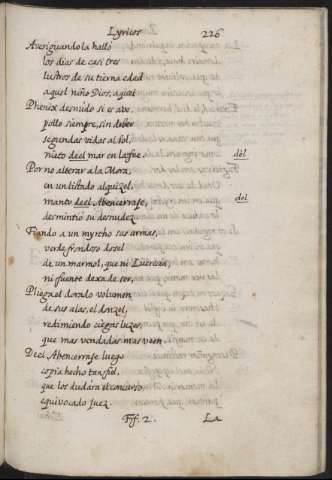 Lyricos 226
Averiguando la hallo
los dias de casi tres
lustros de su tierna edad
aquel niño Dios, aquel
Phenix desnudo si es ave,
pollo siempre, sin deber
segundas vidas al sol,
nieto deel mar en la fee. dol
Por no alterar a la Mora,
en un listado alquizel,
manto deel Abencerraje, del
desmintio su desnudez.
Fiando a un myrtho sus armas,
verde frondoso dosel
de un marmol, que ni Lucrecia
ni fuente dexa de ser,
Pliega el dorado volumen
de sus alas, el donzel,
redimiendo ciegas luzes,
que mas vendadas mas veen.
Deel Abencerraje luego
copia hecho tan fiel,
que los dudara el concurso
equivocado juez.
Ff. 2. La